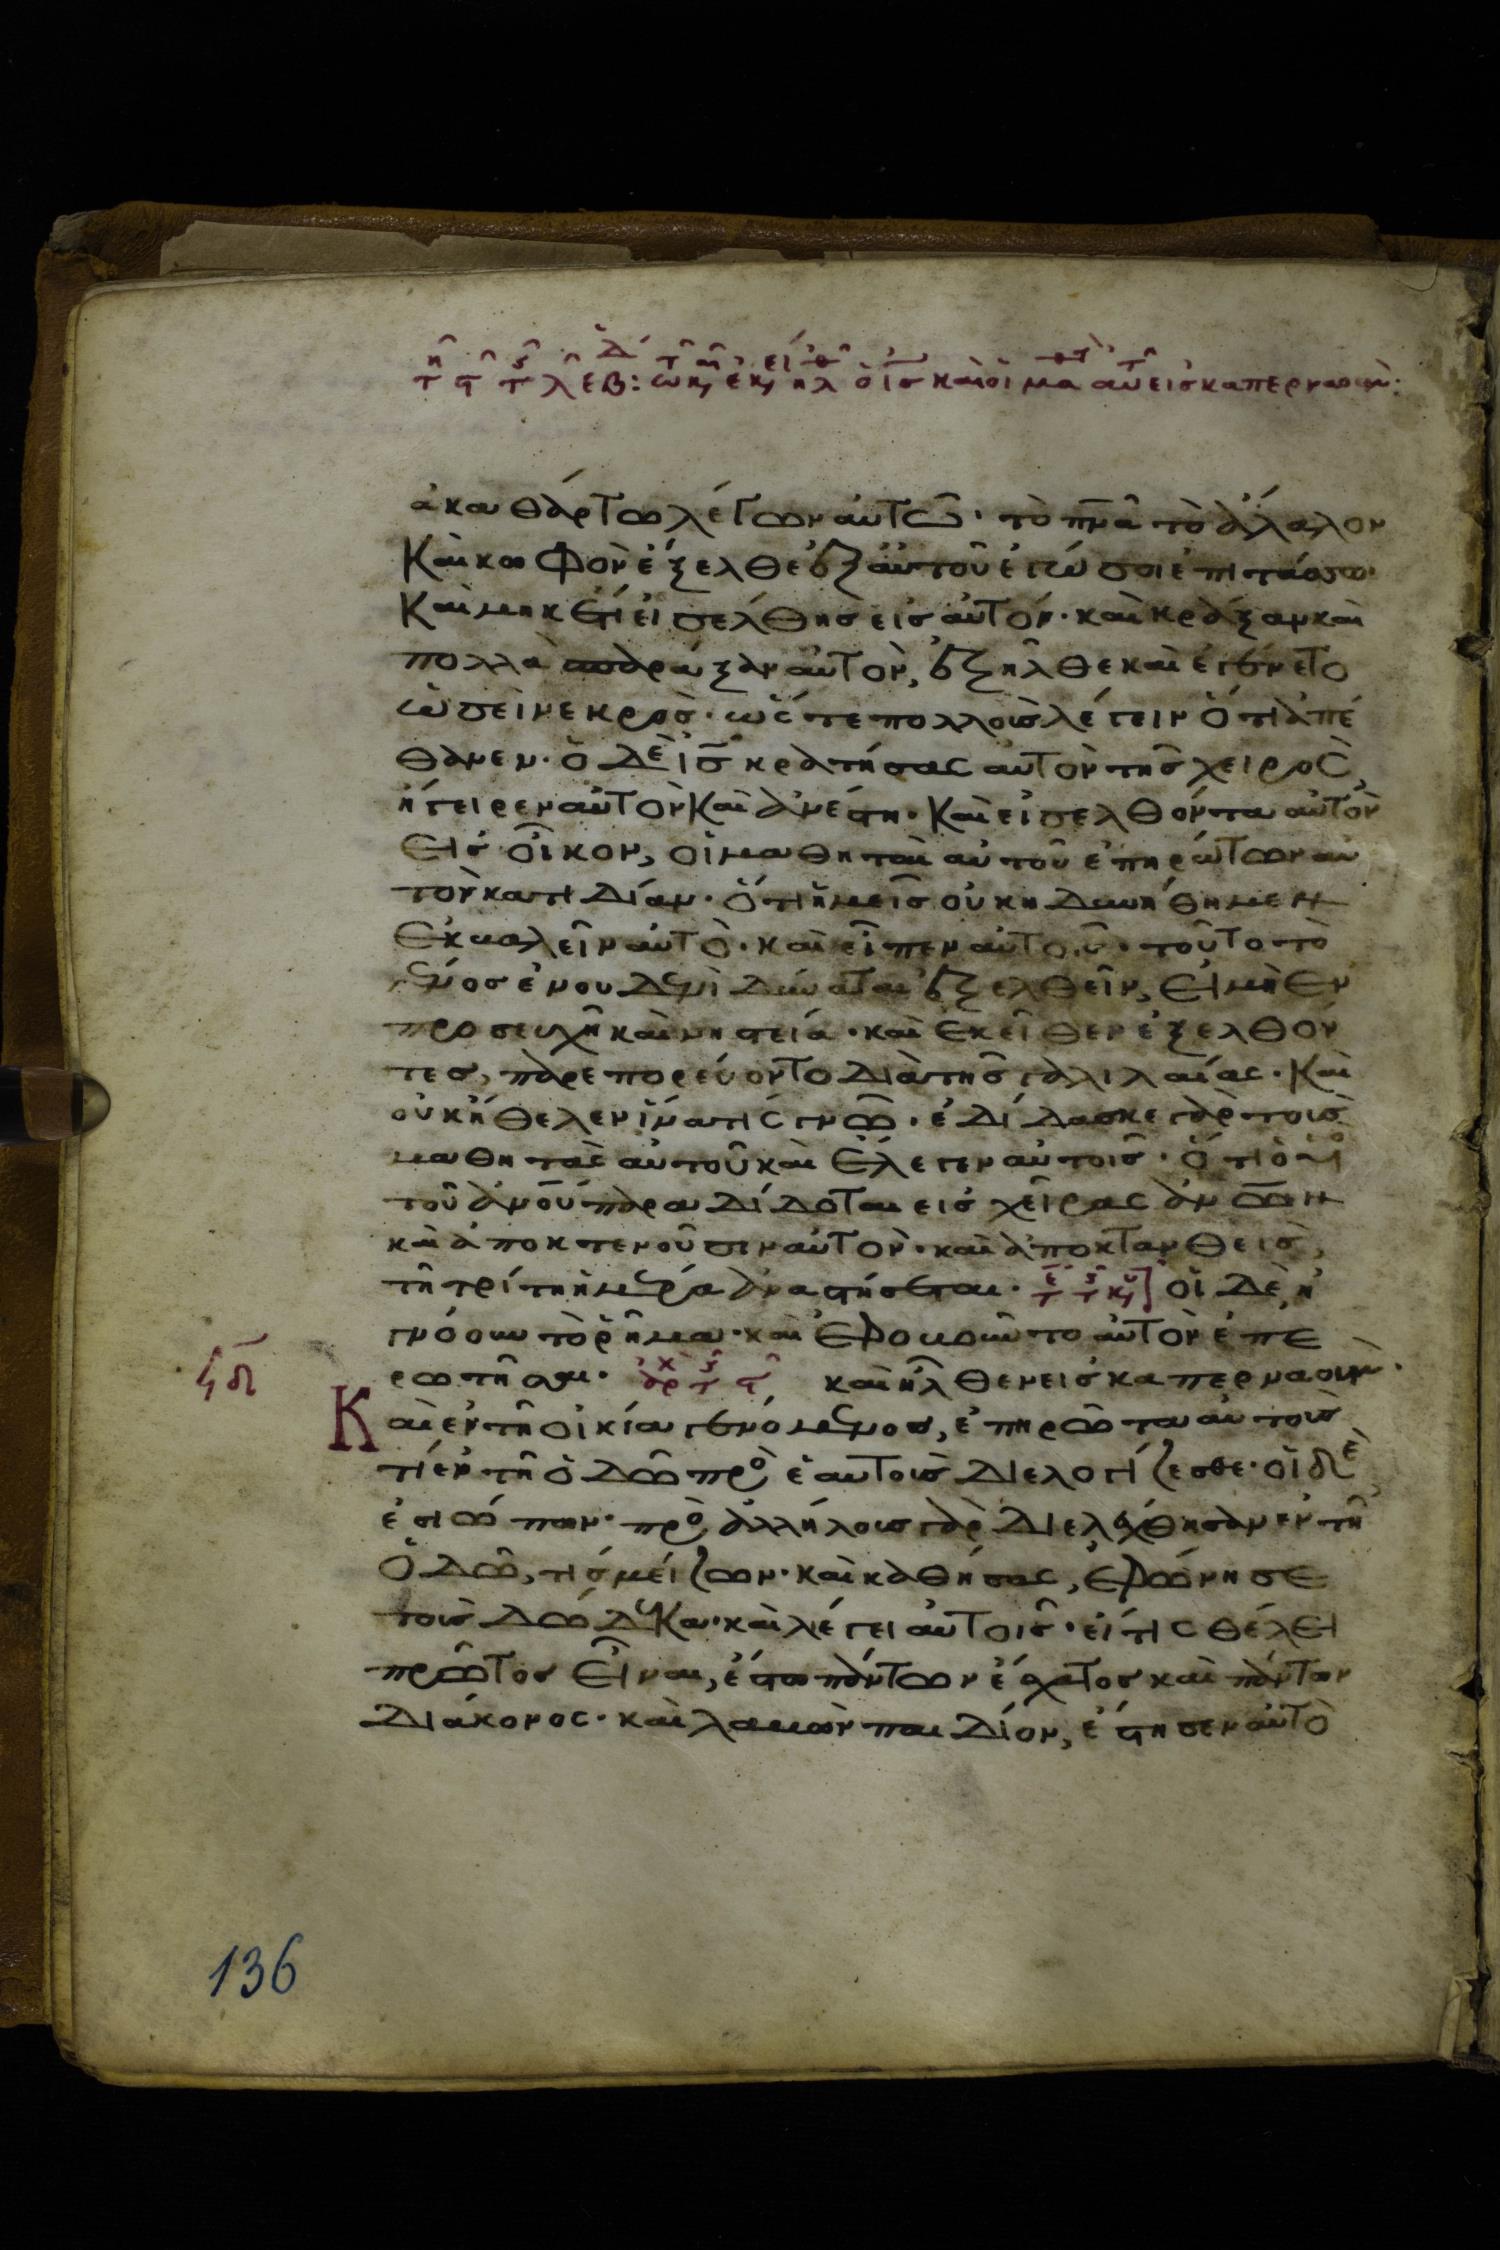 ἀκαθάρτω λέγων αὐτῶ· τὸ πνᾶ τὸ ἄλαλον
Καὶ κωφὸν ἔξελθε ἐξ αὐτοῦ ἐγώ σοι ἐπιτάσσω·
Καὶ μηκέτι εἰσέλθης εἰς αὐτόν· καὶ κράξαν καὶ
πολλὰ σπαράξαν αὐτὸν, ἐξῆλθε καὶ ἐγένετο
ὡσεὶ νεκρὸς· ὥστε πολλοὺς λέγειν ὅτι ἀπέ
θανεν· ὁ δὲ ις κρατήσας αὐτὸν τῆς χειρὸς,
ἤγειρεν αὐτὸν Καὶ ἀνέστη· Καὶ εἰσελθόντα αὐτὸν
εἰς οἶκον, οἱ μαθηταὶ αὐτοῦ ἐπηρώτων αὐ
τὸν κατιδίαν· ὅτι ἡμεῖς οὐκ ηδυνήθημεν
ἐκβαλεῖν αὐτὸ· καὶ εἶπεν αὐτοῖς· τοῦτο τὸ
γένος ἐν οὐδενὶ δύναται ἐξελθεῖν, εἰ μὴ ἐν
προσευχῆ καὶ νηστεία· καὶ ἐκεῖθεν ἐξελθόν
τες, παρεπορεύοντο διὰ τῆς γαλιλαίας· Καὶ
οὐκ ἤθελεν ἵνα τίς γνῶ· ἐδίδασκε γὰρ τοὺς
μαθητὰς αὐτοῦ καὶ ἔλεγεν αὐτοῖς· ὅτι ὁ υἱὸς
τοῦ ἀνου παραδίδοται εἰς χεῖρας ἀνων
καὶ ἀποκτενοῦσιν αὐτὸν· καὶ ἀποκτανθεὶς,
τῆ τρίτη ἡμέρα ἀναστήσεται· οἱ δὲ ἠ
γνόουν τὸ ῥῆμα· καὶ ἐφοβοῦντο αὐτὸν ἐπε
ρωτῆσαι· καὶ ἦλθεν εἰς καπερναοὺμ·
Καὶ ἐν τῆ οἰκία γενόμενος, ἐπηρώτα αὐτοὺς
τί ἐν τῆ ὁδῶ πρὸς ἑαυτοὺς διελογίζεσθε· οἱ δὲ
ἐσιώπων· πρὸς ἀλλήλους γὰρ διελέχθησαν ἐν τῆ
ὁδῶ, τίς μείζων· καὶ καθήσας, ἐφώνησε
τοὺς δώδεκα· καὶ λέγει αὐτοῖς· εἴ τις θέλει
πρῶτος εἶναι, ἔσται πάντων ἔσχατος καὶ πάντων
διάκονος· καὶ λαβὼν παιδίον, ἔστησεν αὐτὸ
136